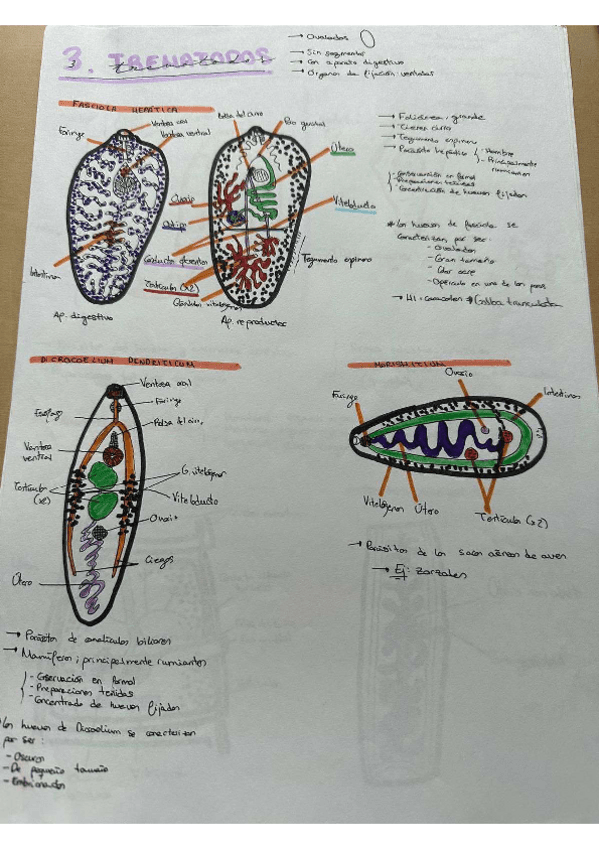 3. TREMATODOS
→ Ovalados
→ Sin segmentar
→ Con aparato digestivo
→ Órganos de fijación ventrales
FASCIOLA HEPÁTICA
Ventosa oral
Ventosa ventral
Faringe
Intestino
Ap. digestivo
Bolsa del cirro
Poro genital
Útero
Viteloducto
Ovario
Ootipo
Conducto deferente
Testículos (x2)
Glándulas vitelógenas
Tegumento espinoso
Ap. reproductor
→ Foliácea, grande
→ Tegumento espinoso
→ Parásito hepático
- Hombre
- Principalmente rumiantes
- Conservación en formol
- Preparaciones teñidas
- Concentración de huevos fijados
* Los huevos de fasciola se
caracterizan por ser:
- Ovalados
- Gran tamaño
- Color ocre
- Opérculo en uno de los polos
→ HI: caracoles → Galba truncatula
DICROCOELIUM DENDRITICUM
Ventosa oral
Faringe
Esófago
Bolsa del cirro
Ventosa
ventral
Testículos
(x2)
G. vitelógenas
Viteloducto
Ovario
Ciegos
Útero
→ Parásitos de canalículos biliares
→ Mamíferos, principalmente rumiantes
- Conservación en formol
- Preparaciones teñidas
- Concentrado de huevos fijados
Los huevos de Dicrocoelium se caracterizan
por ser:
- Oscuros
- De pequeño tamaño
- Embrionados
Ovario
Intestinos
Faringe
Vitelógenos
Útero
Testículos (x2)
→ Parásitos de los sacos aéreos de aves
→ Ej: zorzales